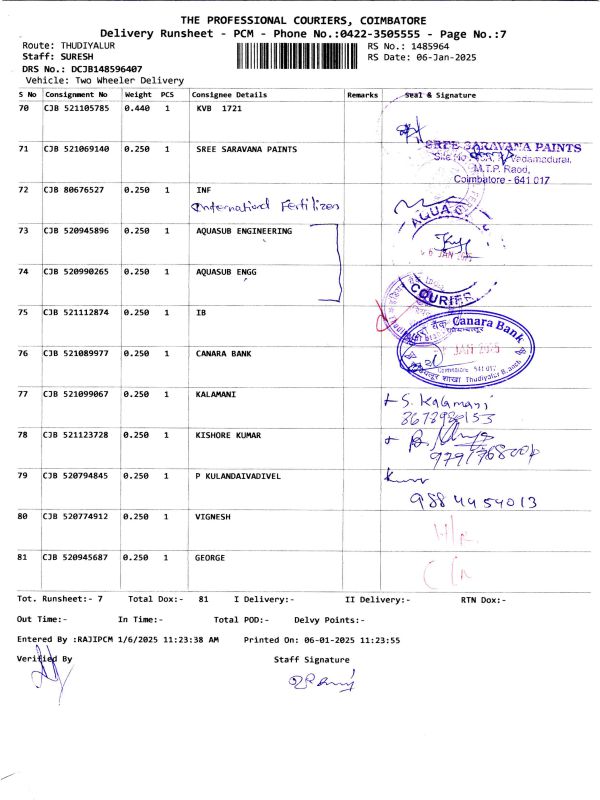 THE PROFESSIONAL COURIERS, COIMBATORE
Delivery Runsheet - PCM - Phone No.:0422-3505555 - Page No.:7
Route: THUDIYALUR RS No.: 1485964
Staff: SURESH RS Date: 06-Jan-2025
DRS No.: DCJB148596407
Vehicle: Two Wheeler Delivery
S No Consignment No Weight PCS Consignee Details Remarks Seal & Signature
70 CJB 521105785 0.440 1 KVB 1721
71 CJB 521069140 0.250 1 SREE SARAVANA PAINTS
SREE SARAVANA PAINTS
Site No Vedamadurai,
M.T.P. Raod,
Coimbatore - 641 017
72 CJB 80676527 0.250 1 INF
International Fertilizer
73 CJB 520945896 0.250 1 AQUASUB ENGINEERING
AQUAS
6 JAN
74 CJB 520990265 0.250 1 AQUASUB ENGG
COURIER
75 CJB 521112874 0.250 1 IB
76 CJB 521089977 0.250 1 CANARA BANK
Canara Bank
JAN 2025
Coimbatore 641 017
शाखा Thudiyalur Branch
77 CJB 521099067 0.250 1 KALAMANI
S. Kalamani
78 CJB 521123728 0.250 1 KISHORE KUMAR
79 CJB 520794845 0.250 1 P KULANDAIVADIVEL
9884454013
80 CJB 520774912 0.250 1 VIGNESH
81 CJB 520945687 0.250 1 GEORGE
Tot. Runsheet:- 7 Total Dox:- 81 I Delivery:- II Delivery:- RTN Dox:-
Out Time:- In Time:- Total POD:- Delvy Points:-
Entered By :RAJIPCM 1/6/2025 11:23:38 AM Printed On: 06-01-2025 11:23:55
Verified By Staff Signature